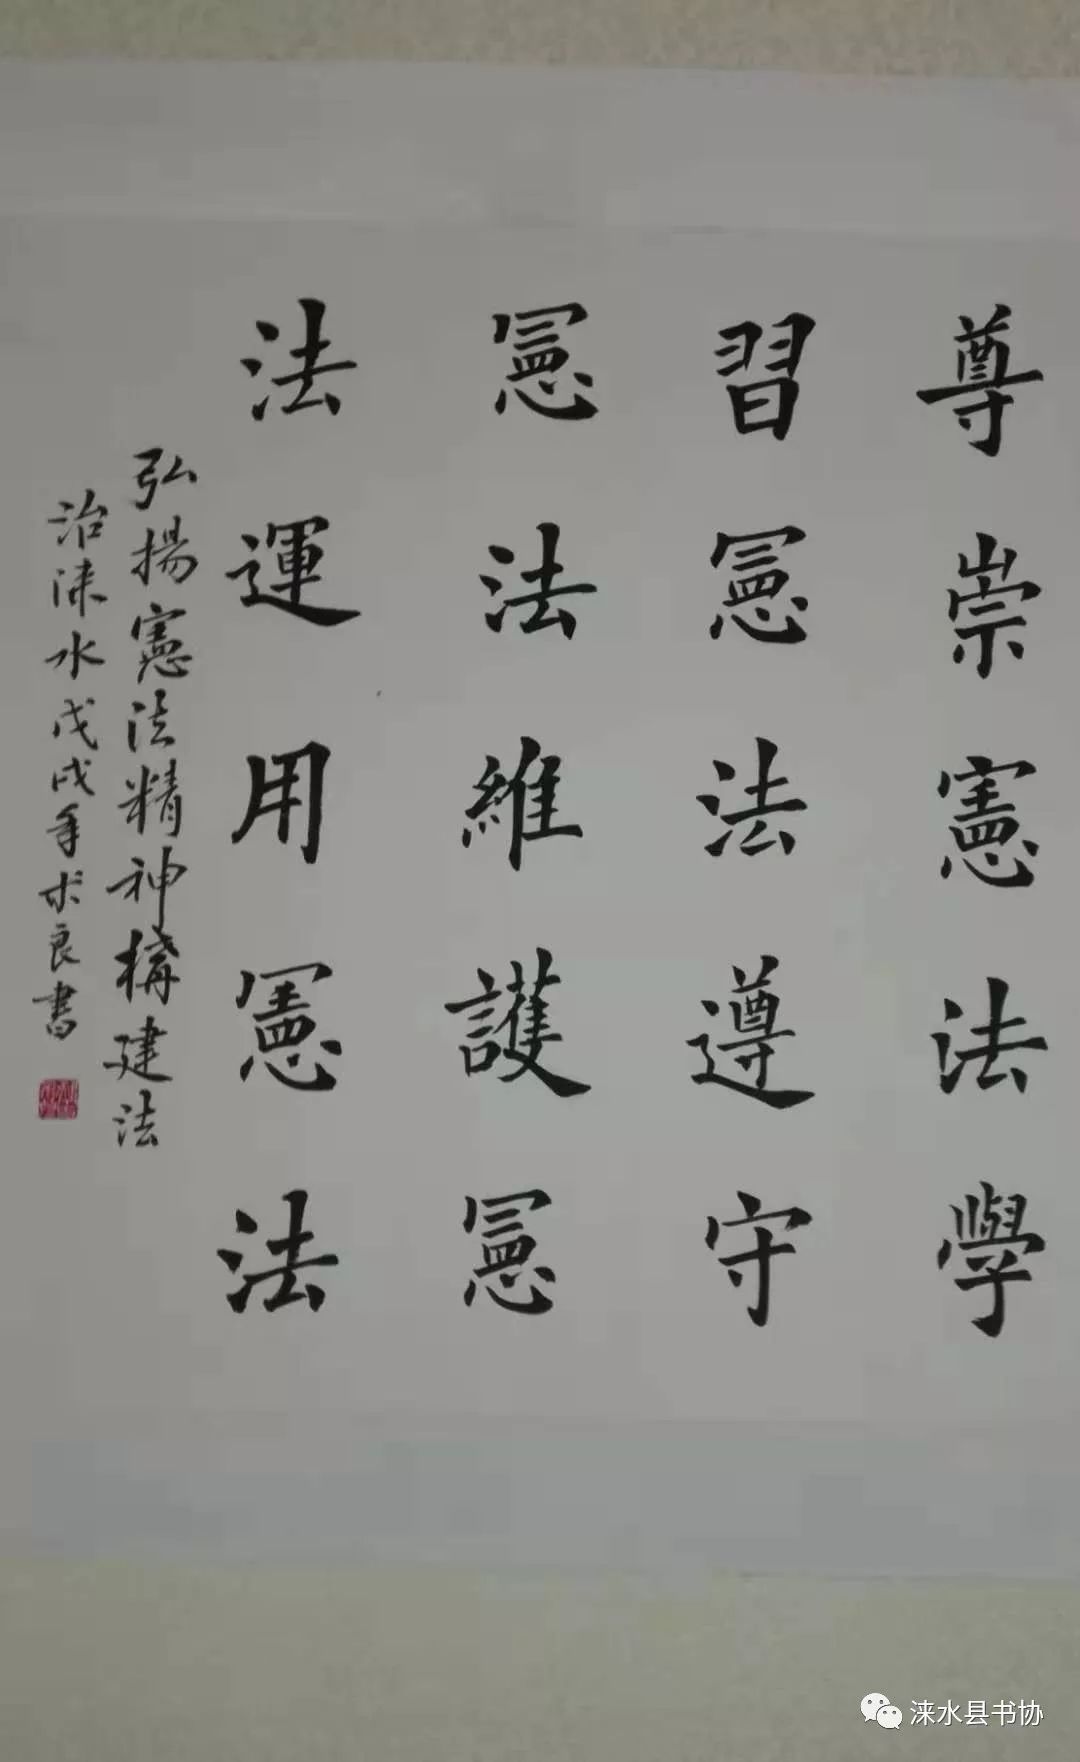 尊崇憲法學
習憲法遵守
憲法維護憲
法運用憲法
弘揚憲法精神構建法
治涞水戊戌年术良書
涞水县书协